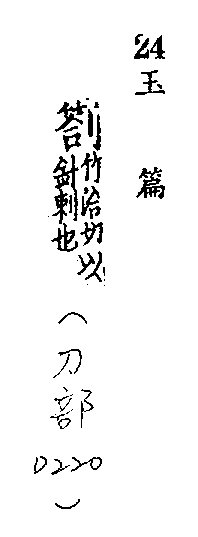 24玉篇
劄竹洽切以
針刺也
（刀部0220）